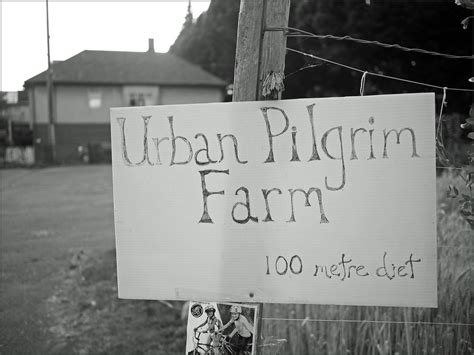 Urban Pilgrim
Farm
100 metre diet